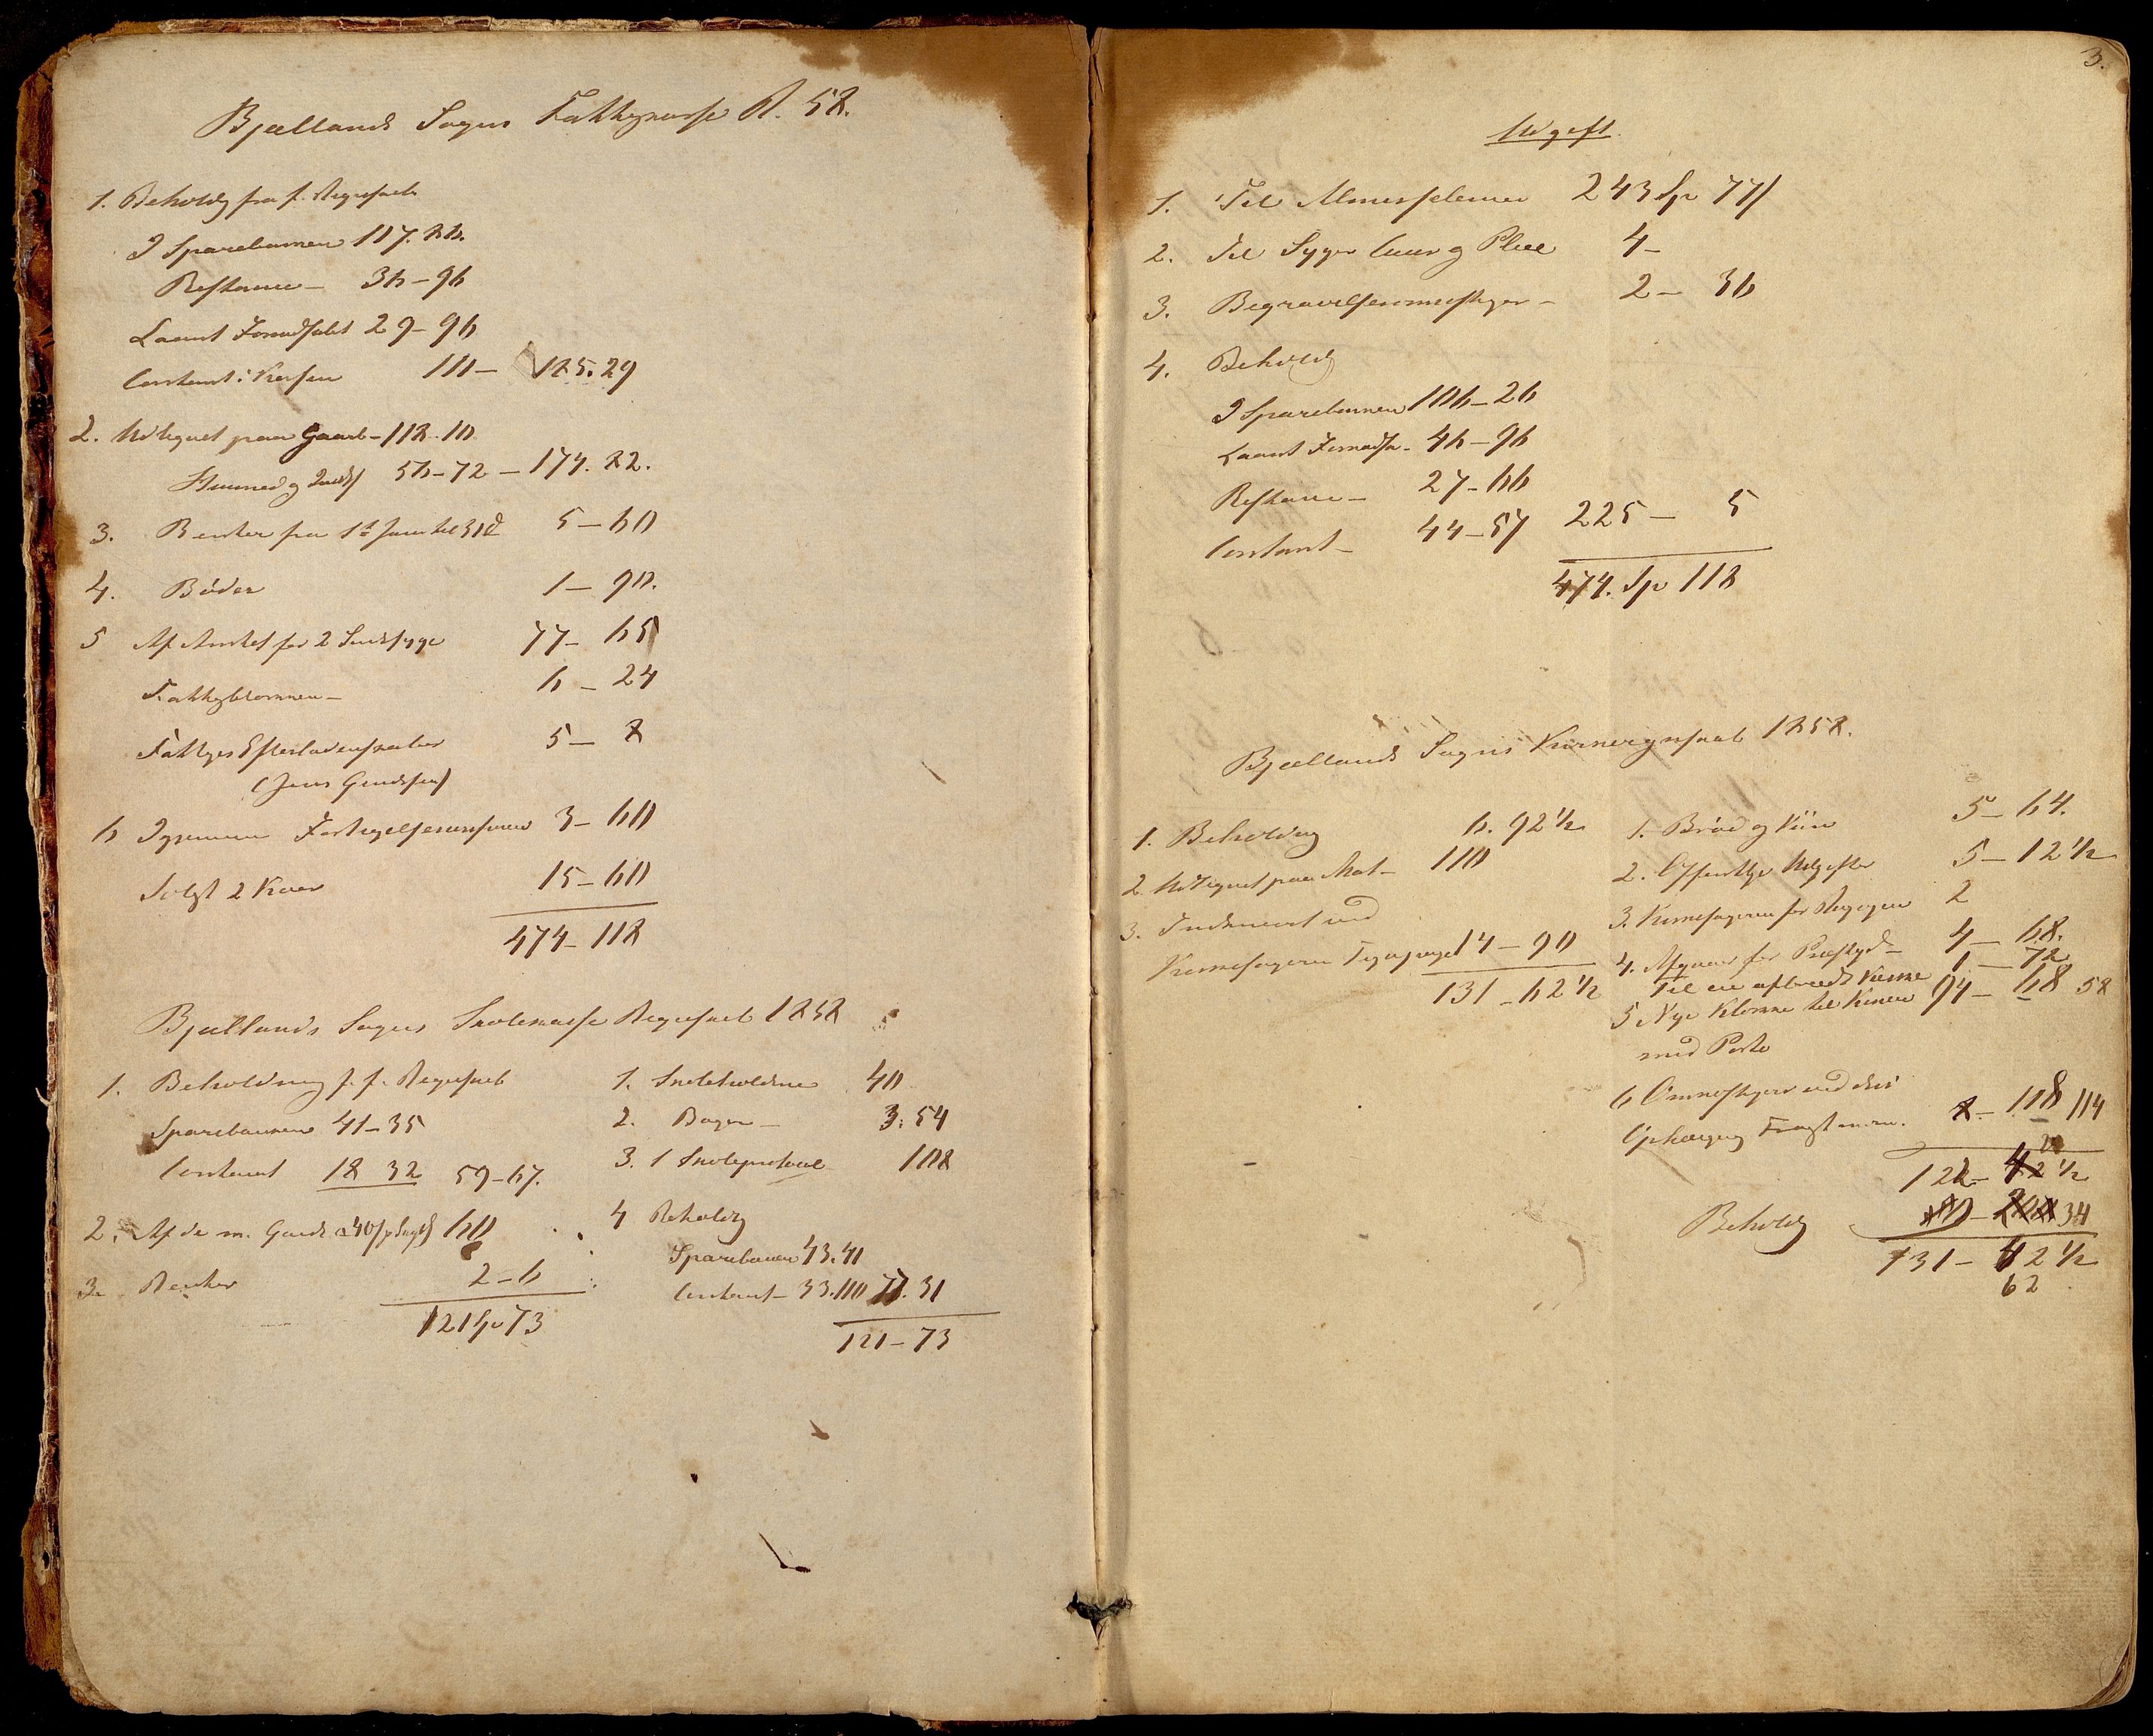 Bjællands Sogns Fattigcasse R. 58.
1. Beholdg fra f. Regnskab
I Sparebanken 107. 88.
Restance - 36 - 96
Laant Fornadsalet 29 - 96
Contant i Kassen 111 - 185. 29
2. Udlignet paa Gaarde - 118. 10
Huusmd og Inds 56 - 72 - 174. 82.
3. Renter fra 1st Janr til 31 D 5 - 60
4. Bøder 1 - 90.
5 Af Amtet for 2 Sindssyge 77 - 65
Fattigblokken - 6 - 24
Fattiges Efterladenskaber 5 - 8
(Jens Gundersen)
6 Igjennem Forligelsescommis 3 - 60
Solgt 2 Køer 15 - 60
474 - 118
Bjællands Sogns Skolekasse Regnskab 1858
1. Beholdning f. f. Regnskab
Sparebanken 41 - 35
Contant 18 32 59 - 67.
2. Af de m. Gaarde a 40 60
3. Renter 2 - 6
121 Sp 73
1. Skoleholdere 40
2. Bøger - 3. 54
3. 1 Skoleprotocol 108
4 Beholdg
Sparebanken 43. 41
Contant - 33. 110 77. 31
121 - 73
3.
Udgift.
1. Til Almisselemmer 243 Sp 77
2. Til Syges Cuur og Pleie 4 -
3. Begravelsesomkostger - 2 - 36
4. Beholdg
I Sparebanken 106 - 26
Laant Fornadsa - 46 - 96
Restance - 27 - 66
Contant - 44 - 57 225 - 5
474. Sp 118
Bjællands Sogns Kirkeregnskab 1858.
1. Beholdng 6. 92 1/2
2. Udlignet paa Mat - 110
3. Indkomst ved
Kirkesangeren 14 - 90
131 - 62 1/2
1. Brød og Viin 5 - 64.
2. Offentlige Udgifter 5 - 12 1/2
3. Kirkesangeren for Rengjøren 2
4. Afgaver for Præstgd - 4 - 68.
Til en Kirke 1 - 72
5 Nye Klokke til Kirken 94 - 68 58
med Porto
6 Omkostger ved dens
Ophængng Fragt m.m. 8 - 118 114
122 - 42 1/2 28
Beholdg 34
131 - 42 1/2
62